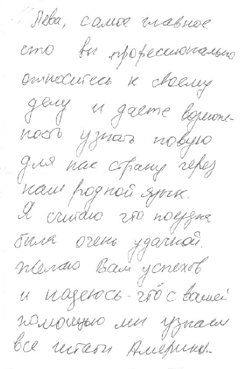 Лева, самое главное
что вы профессионально
относитесь к своему
делу и даете возмож-
ность узнать новую
для нас страну через
наш родной язык.
Я считаю что поездка
была очень удачной.
Желаю Вам успехов
и надеюсь что с вашей
помощью мы узнаем
все штаты Америки.